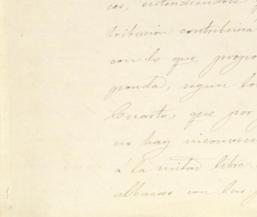 cos, entendiendose
tribucion contribuira
con lo que propo
ponda, segun lo
Cuarto, que por
no hay inconveni
á la mitad libra
albaceas con las